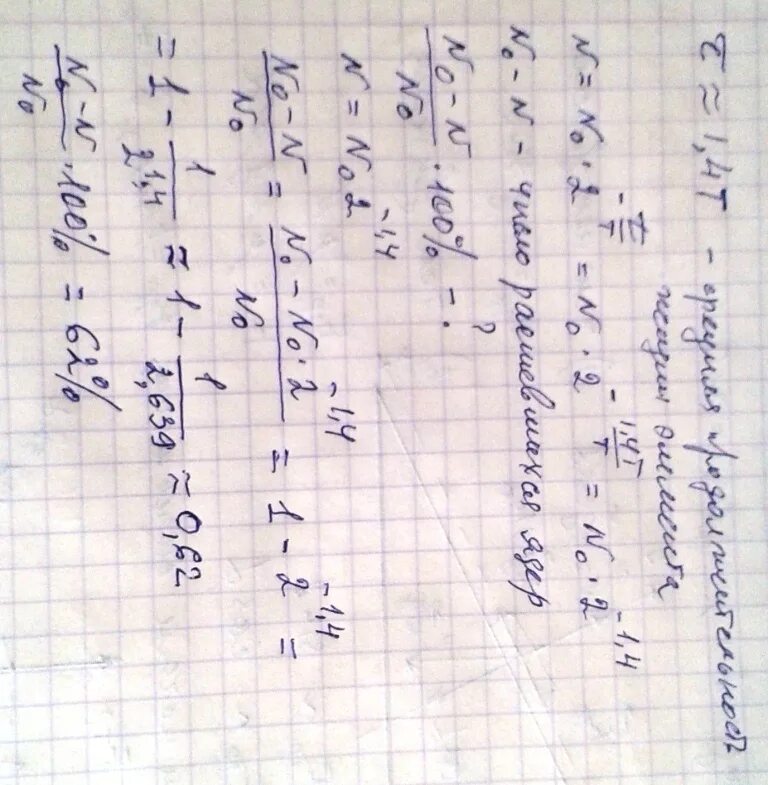 τ ≈ 1,4T – средняя продолжительность
жизни элемента
N = N₀ · 2^(-t/T) = N₀ · 2^(-1,4T/T) = N₀ · 2^(-1,4)
N₀ – N – число распавшихся ядер
(N₀ – N)/N₀ · 100% – ?
N = N₀ 2^(-1,4)
(N₀ – N)/N₀ = (N₀ – N₀ · 2^(-1,4))/N₀ = 1 – 2^(-1,4) =
= 1 – 1/2^(1,4) ≈ 1 – 1/2,639 ≈ 0,62
(N₀ – N)/N₀ · 100% = 62%